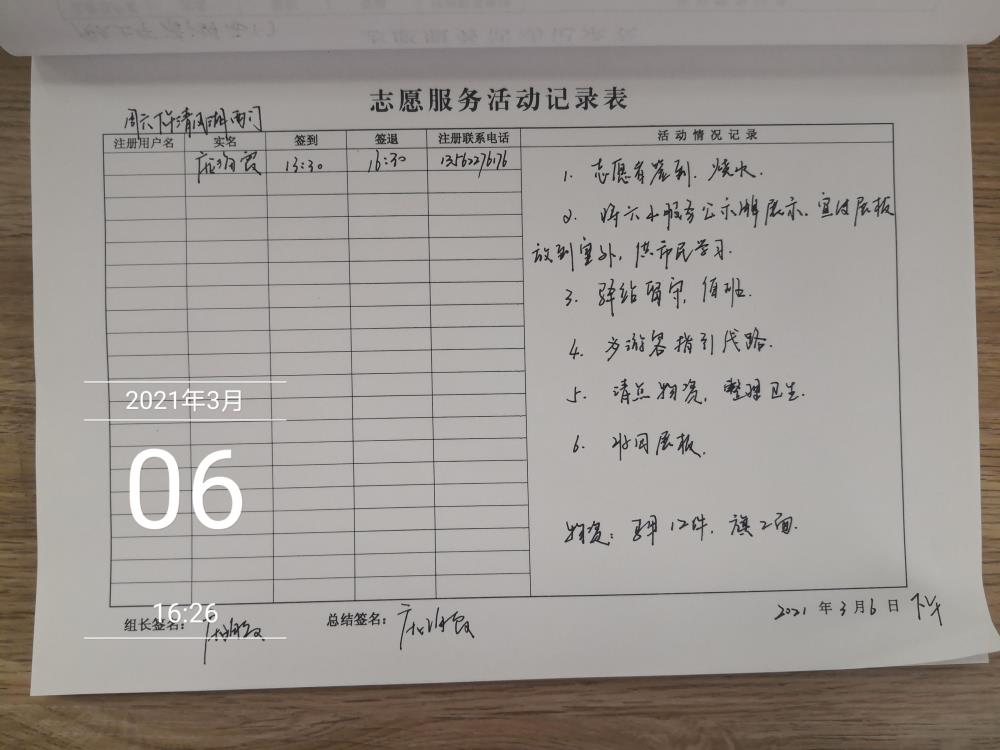 志愿服务活动记录表
周六下午清风湖西门
注册用户名 实名 签到 签退 注册联系电话 活动情况记录
13:30 16:30 13562276176
1. 志愿者签到. 烧水.
2. 将六小服务公示牌展示. 宣传展板
放到室外, 供市民学习.
3. 驿站留守, 值班.
4. 为游客指引代路.
5. 清点物资, 整理卫生.
6. 收回展板.
物资: 12件. 旗2面.
2021年3月
06
16:26
组长签名:
总结签名:
2021 年 3 月 6 日 下午